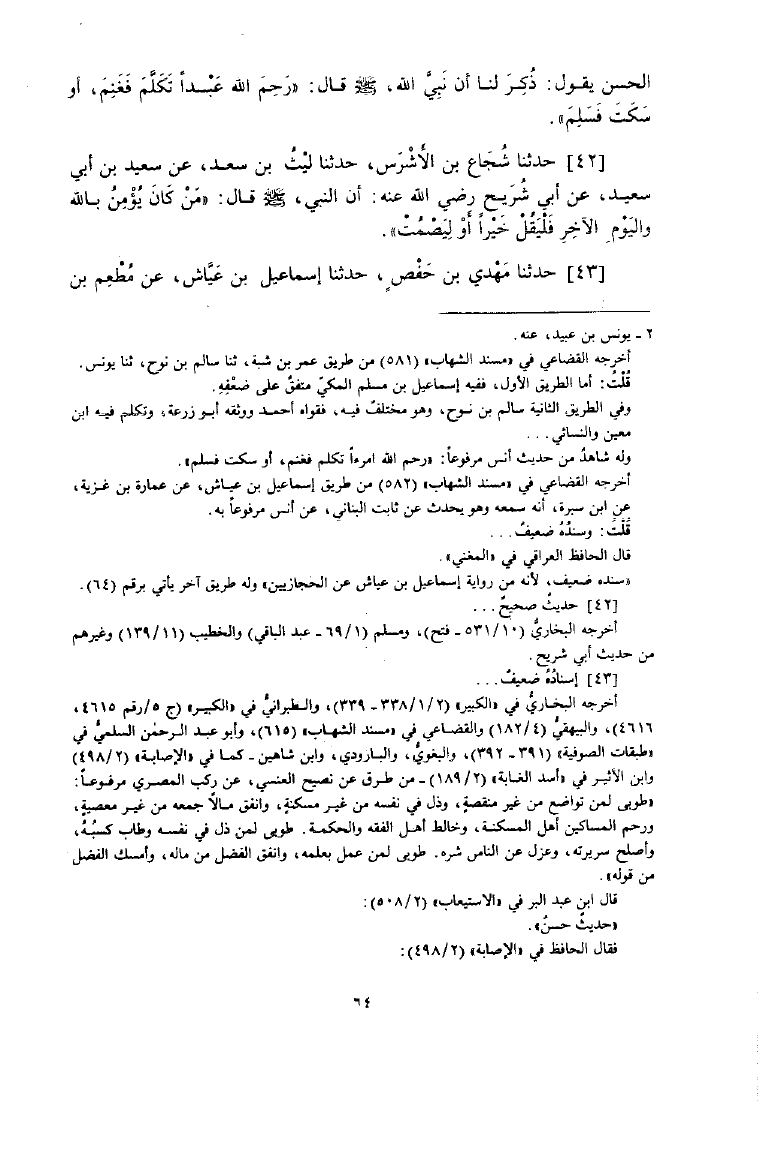 الحسن يقول: ذُكِرَ لنـا أن نَبِيَّ الله، ﷺ قـال: «رَحِمَ الله عَبْـداً تَكَلَّمَ فَغَنِمَ، أو
سَكَتَ فَسَلِمَ».
[٤٢] حدثنا شُجَاع بن الأَشْرَس، حدثنا لَيْثُ بن سعـد، عن سعيد بن أبي
سعيـد، عن أبي شُرَيـح رضي الله عنه: أن النبي، ﷺ قـال: «مَنْ كَانَ يُؤْمِنُ بـالله
واليَوْمِ الآخِرِ فَلْيَقُلْ خَيْراً أَوْ لِيَصْمُتْ».
[٤٣] حدثنا مَهْدي بن حَفْص، حدثنا إسماعيل بن عَيَّاش، عن مُطْعِم بن
٢ ـ يونس بن عبيد، عنه.
أخرجه القضاعي في «مسند الشهاب» (٥٨١) من طريق عمر بن شبة، ثنا سالم بن نوح، ثنا يونس.
قُلْتُ: أما الطريق الأول، ففيه إسماعيل بن مسلم المكيّ متفقٌ على ضعْفِهِ.
وفي الطريق الثانية سالم بن نـوح، وهو مختلفٌ فيـه، فقواه أحمـد ووثقه أبـو زرعة، وتكلم فيـه ابن
معين والنسائي...
وله شاهدٌ من حديث أنس مرفوعاً: «رحم الله امرءاً تكلم فغنم، أو سكت فسلم».
أخرجه القضاعي في «مسند الشهاب» (٥٨٢) من طريق إسماعيل بن عيـاش، عن عمارة بن غـزية،
عن ابن سبرة، أنه سمعه وهو يحدث عن ثابت البناني، عن أنس مرفوعاً به.
قُلْتُ: وسندُهُ ضعيفٌ...
قال الحافظ العراقي في «المغني».
«سنده ضعيف، لأنه من رواية إسماعيل بن عياش عن الحجازيين» وله طريق آخر يأتي برقم (٦٤).
[٤٢] حديثٌ صحيحٌ...
أخرجه البخاريُّ (١٠/٥٣١ ـ فتح)، ومسلم (١/٦٩ ـ عبد الباقي) والخطيب (١١/١٣٩) وغيرهم
من حديث أبي شريح.
[٤٣] إسنادُهُ ضعيفٌ...
أخرجه البخـاريُّ في «الكبير» (٢/١/٣٣٨ ـ ٣٣٩)، والـطبرانيُّ في «الكبيـر» (ج ٥/رقم ٤٦١٥،
٤٦١٦)، والبيهقيُّ (٤/١٨٢) والقضـاعي في «مسند الشهـاب» (٦١٥)، وأبو عبـد الرحمٰن السلميُّ في
«طبقات الصوفية» (٣٩١ ـ ٣٩٢)، والبغويُّ، والبـارودي، وابن شاهين ـ كمـا في «الإصابـة» (٢/٤٩٨)
وابن الأثيـر في «أسد الغـابة» (٢/١٨٩) ـ من طـرق عن نصيح العنسي، عن ركب المصـري مرفـوعـاً:
«طوبى لمن تواضع من غير منقصةٍ، وذل في نفسه من غيـر مسكنةٍ، وانفق مـالاً جمعه من غيـر معصيةٍ،
ورحم المساكين أهل المسكنـة، وخالط أهـل الفقه والحكمـة. طوبى لمن ذل في نفسـه وطاب كسبُـهُ،
وأصلح سريرته، وعزل عن الناس شره. طوبى لمن عمل بعلمه، وانفق الفضل من ماله، وأمسك الفضل
من قوله».
قال ابن عبد البر في «الاستيعاب» (٢/٥٠٨):
«حديثٌ حسنٌ».
فقال الحافظ في «الإصابة» (٢/٤٩٨):
٦٤